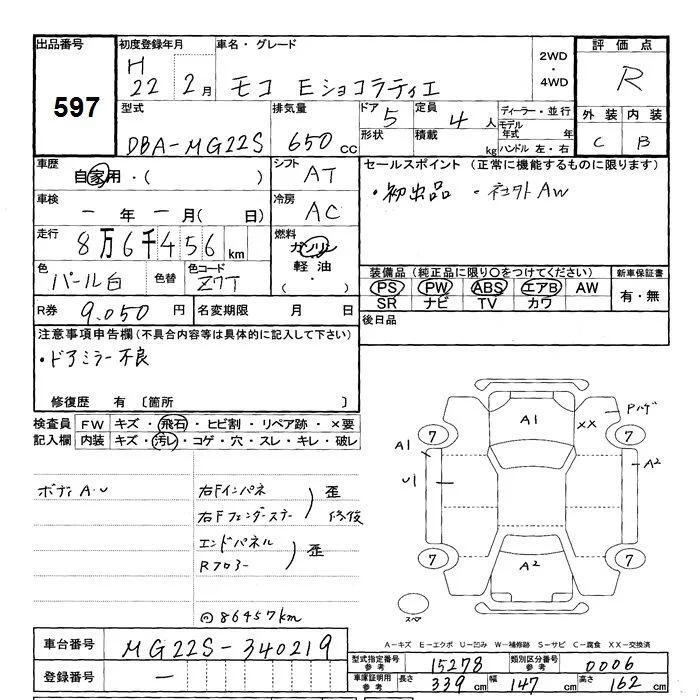 出品番号 初度登録年月 車名・グレード 2WD・4WD 評価点
597 H22 2月 モコ Eショコラティエ R
型式 排気量 ドア 5 定員 4人 ディーラー・並行 外装 内装
DBA-MG22S 650cc 形状 積載 kg モデル年式 年 C B
ハンドル 左・右
車歴 自家用・( ) シフト AT セールスポイント (正常に機能するものに限ります)
車検 一年一月( 日) 冷房 AC ・初出品 ・社外AW
走行 8万6千456km 燃料 ガソリン
軽油・( )
色 パール白 色替 色コード Z7T 装備品(純正品に限り○をつけてください) 新車保証書
PS PW ABS エアB AW 有・無
SR ナビ TV カワ
R券 9.050円 名変期限 月 日 後日品
注意事項申告欄(不具合内容等は具体的に記入して下さい)
・ドアミラー不良
修復歴 有 〔箇所 〕
検査員記入欄 FW キズ・飛石・ヒビ割・リペア跡・×要
内装 キズ・汚レ・コゲ・穴・スレ・キレ・破レ
ボディA・U 右Fインパネ 歪
右Fフェンダーステー 修復
エンドパネル 歪
Rフロアー
86457km
A1 XX Pハゲ
7 7
A1 A2
U1
7 7
A2
スペア
A-キズ E-エクボ U-凹み W-補修跡 S-サビ C-腐食 XX-交換済
車台番号 MG22S-340219
型式指定番号参考 15278 類別区分番号参考 0006
登録番号 一
車庫証明用参考 長さ 339cm 幅 147cm 高さ 162cm